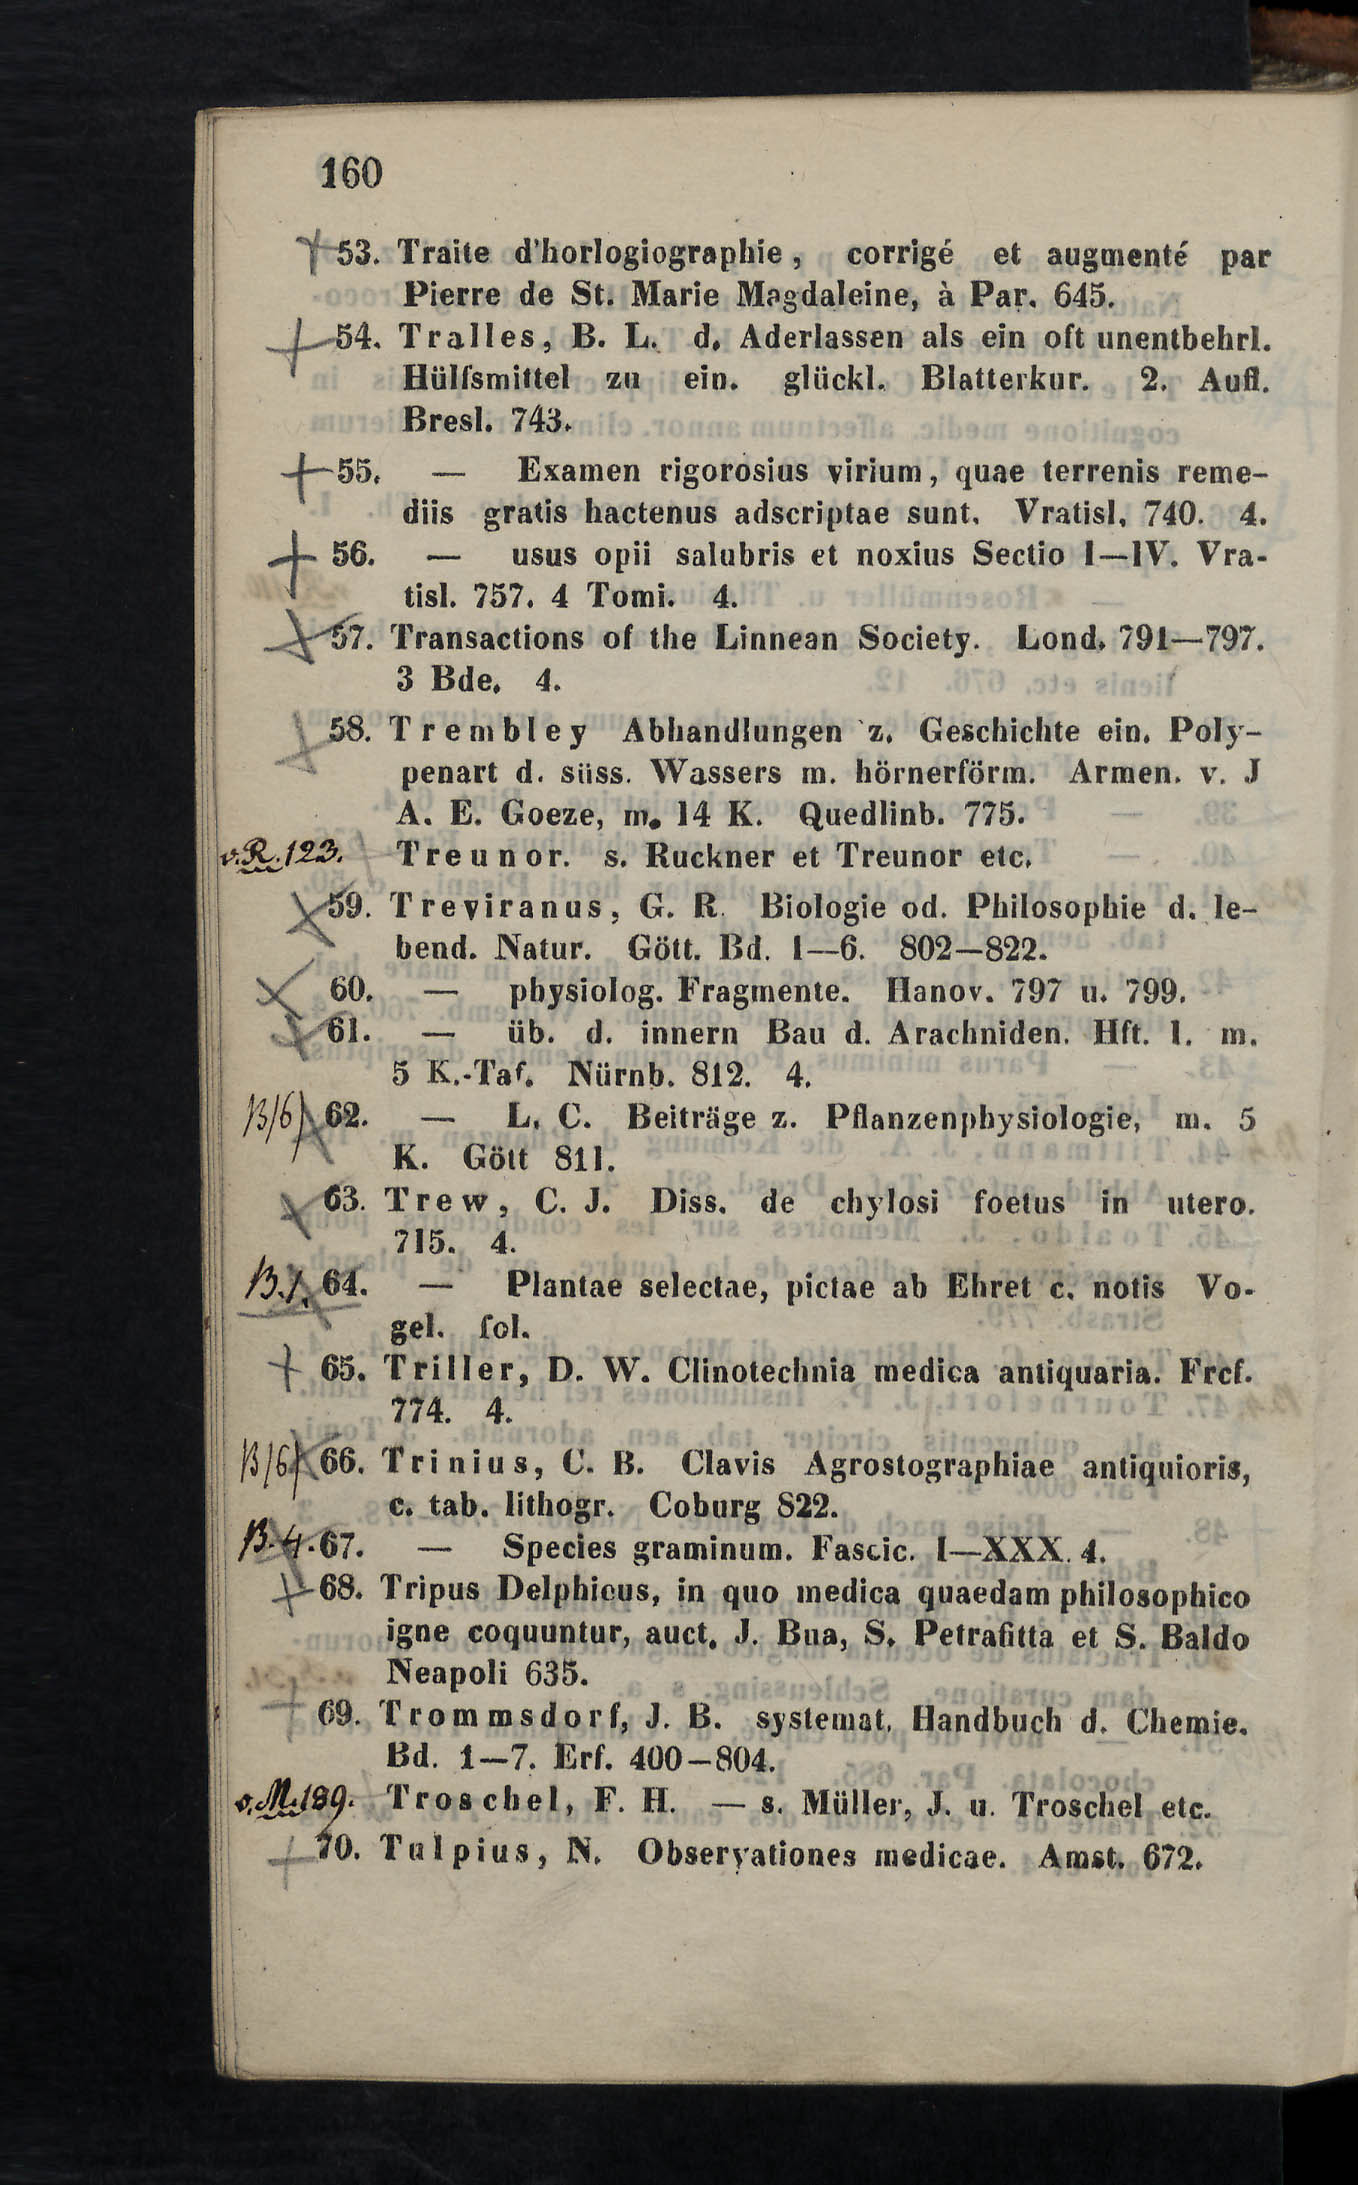 160
53. Traite d'horlogiographie, corrigé et augmenté par
Pierre de St. Marie Magdaleine, à Par. 645.
54. Tralles, B. L. d. Aderlassen als ein oft unentbehrl.
Hülfsmittel zu ein. glückl. Blatterkur. 2. Aufl.
Bresl. 743.
55. — Examen rigorosius virium, quae terrenis reme-
diis gratis hactenus adscriptae sunt. Vratisl. 740. 4.
56. — usus opii salubris et noxius Sectio I—IV. Vra-
tisl. 757. 4 Tomi. 4.
57. Transactions of the Linnean Society. Lond. 791—797.
3 Bde. 4.
58. Trembley Abhandlungen z. Geschichte ein. Poly-
penart d. süss. Wassers m. hörnerförm. Armen. v. J
A. E. Goeze, m. 14 K. Quedlinb. 775.
v. R. 123. Treunor. s. Ruckner et Treunor etc.
59. Treviranus, G. R. Biologie od. Philosophie d. le-
bend. Natur. Gött. Bd. 1—6. 802—822.
60. — physiolog. Fragmente. Hanov. 797 u. 799.
61. — üb. d. innern Bau d. Arachniden. Hft. 1. m.
5 K.-Taf. Nürnb. 812. 4.
B/6 62. — L. C. Beiträge z. Pflanzenphysiologie, m. 5
K. Gött 811.
63. Trew, C. J. Diss. de chylosi foetus in utero.
715. 4.
B. 1. 64. — Plantae selectae, pictae ab Ehret c. notis Vo-
gel. fol.
65. Triller, D. W. Clinotechnia medica antiquaria. Frcf.
774. 4.
B/6 66. Trinius, C. B. Clavis Agrostographiae antiquioris,
c. tab. lithogr. Coburg 822.
B. 4. 67. — Species graminum. Fascic. I—XXX. 4.
68. Tripus Delphicus, in quo medica quaedam philosophico
igne coquuntur, auct. J. Bua, S. Petrafitta et S. Baldo
Neapoli 635.
69. Trommsdorf, J. B. systemat. Handbuch d. Chemie.
Bd. 1—7. Erf. 400—804.
v. M. 189. Troschel, F. H. — s. Müller, J. u. Troschel etc.
70. Tulpius, N. Observationes medicae. Amst. 672.